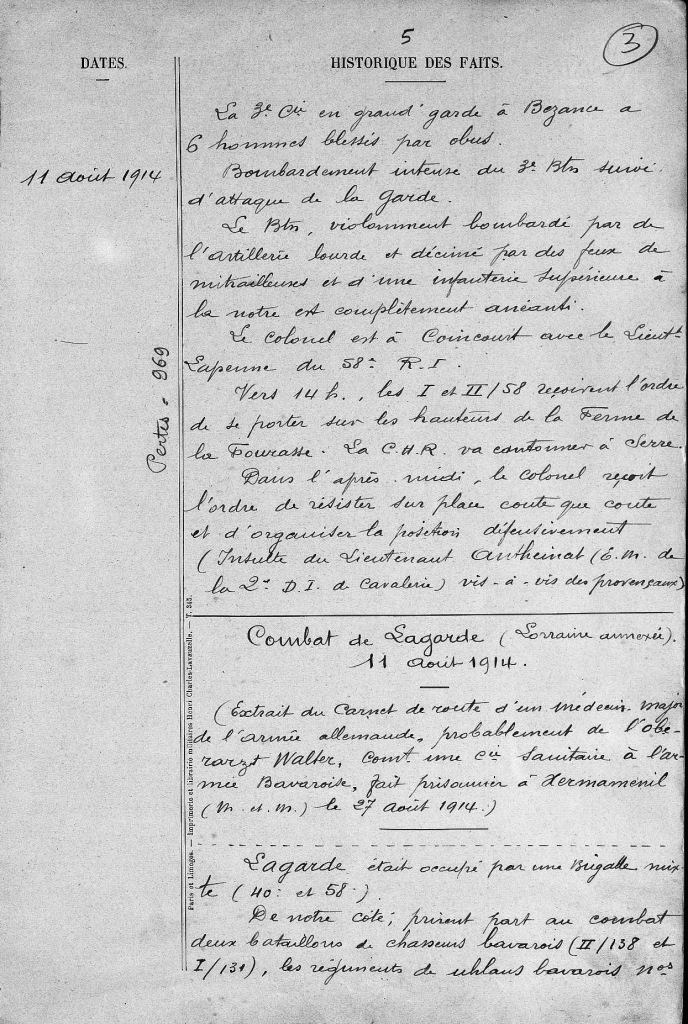 5
3
DATES.
HISTORIQUE DES FAITS.
La 3e Cie en grand' garde à Bezange a
6 hommes blessés par obus.
11 août 1914
Bombardement intense du 3e Btn suivi
d'attaque de la garde.
Le Btn, violemment bombardé par de
l'artillerie lourde et décimé par des feux de
mitrailleuses et d'une infanterie supérieure à
la notre est complètement anéanti.
Le colonel est à Coincourt avec le Lieutt
Lapenne du 58e R.I.
Pertes = 969
Vers 14 h., les I et II/58 reçoivent l'ordre
de se porter sur les hauteurs de la Ferme de
la Fourasse. La C.H.R. va cantonner à Serre.
Dans l'après midi, le colonel reçoit
l'ordre de résister sur place coute que coute
et d'organiser la position défensivement
(Insulte du Lieutenant Antheinat (E.M. de
la 2e D.I. de Cavalerie) vis-à-vis des provençaux)
Combat de Lagarde (Lorraine annexée).
11 août 1914.
(Extrait du Carnet de route d'un médecin major
de l'armée allemande, probablement de l'Obe-
rarzt Walter, Comt une Cie Sanitaire à l'ar-
mée Bavaroise, fait prisonnier à Xermaménil
(M. et. M.) le 27 août 1914.)
Lagarde était occupé par une Brigade mix-
te (40e et 58e)
De notre coté, prirent part au combat
deux bataillons de chasseurs bavarois (II/138 et
I/131), les régiments de uhlans bavarois nos
Paris et Limoges. — Imprimerie et librairie militaires Henri Charles-Lavauzelle. — T. 343.